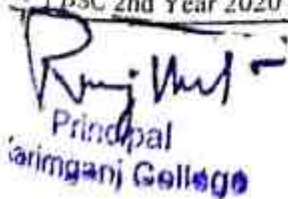 BSC 2nd Year 2020
Principal
Karimganj College